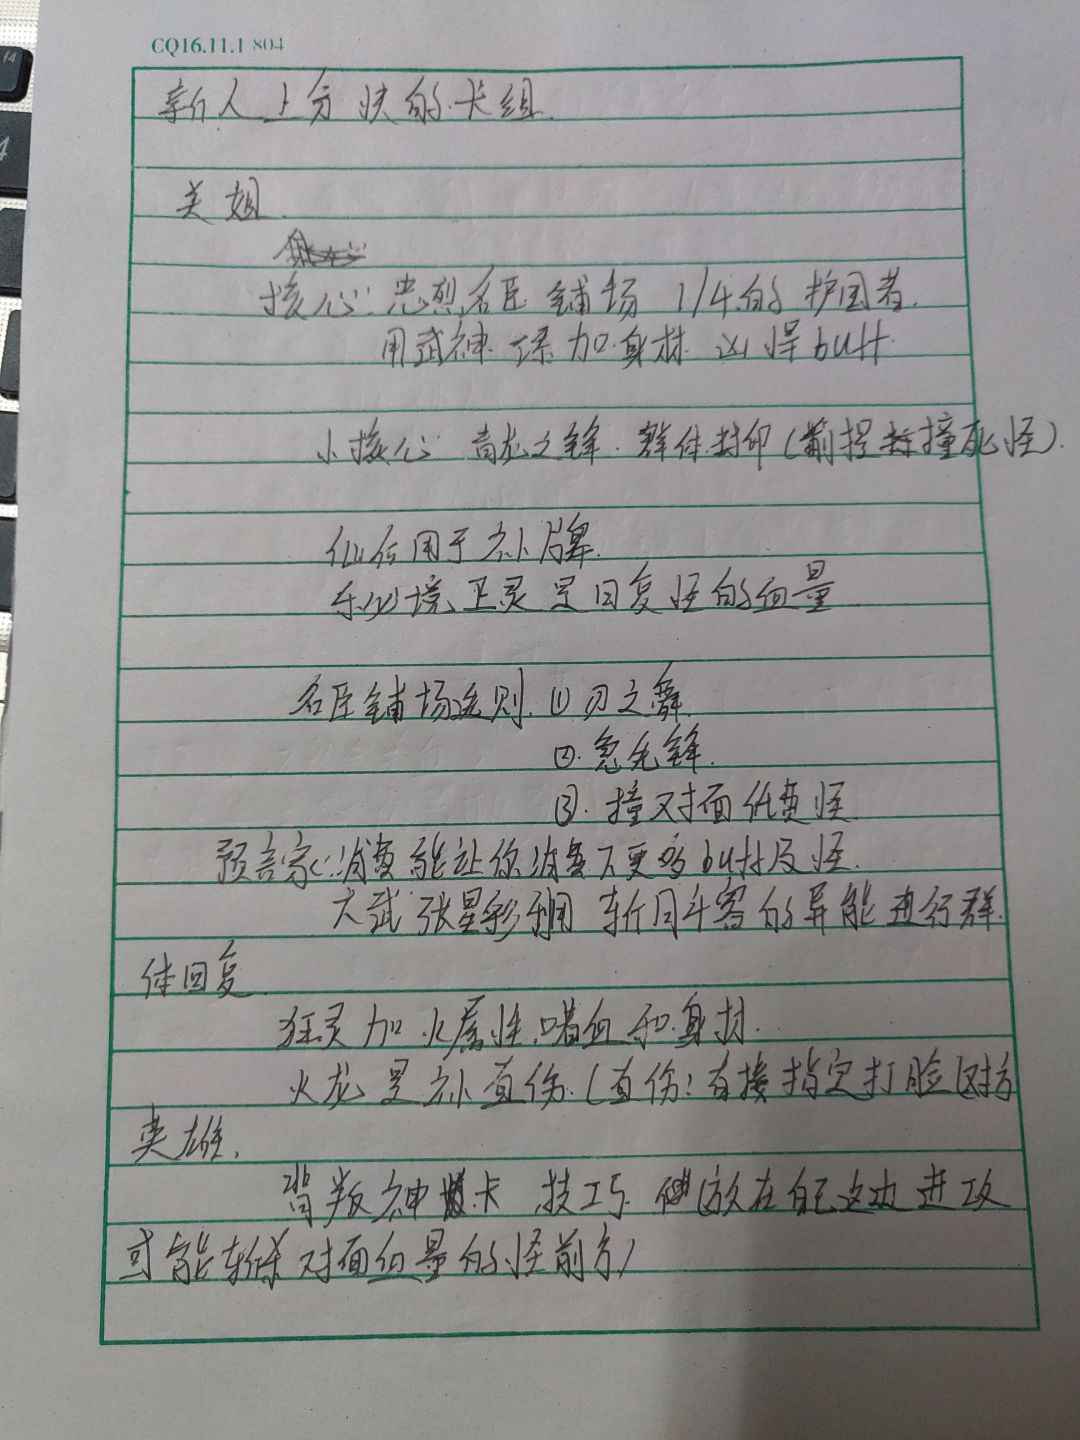 CQ16.11.1 804
新人上分快的卡组.
关姐.
核心: 忠烈名臣 铺场 1/4的护国者.
用武神 添加身材 凶悍buff
小核心 青龙之锋. 群体封印(前提 撞死怪).
仙 用于补牌.
秘境正灵是回复怪的血量
名臣铺场选则. ①刃之舞.
②.急先锋.
③. 撞对面低费怪.
预言家心:消费 能让你消费下更多buff及怪.
大武 张星彩 用 斩同斗客的异能进行群
体回复.
狂灵加火属性.嗜血和身材.
火龙是补直伤.(直伤:直接指定打脸(对方
英雄.
背叛神 卡 技巧. 放在自己这边进攻
或能斩杀对面血量的怪前方)